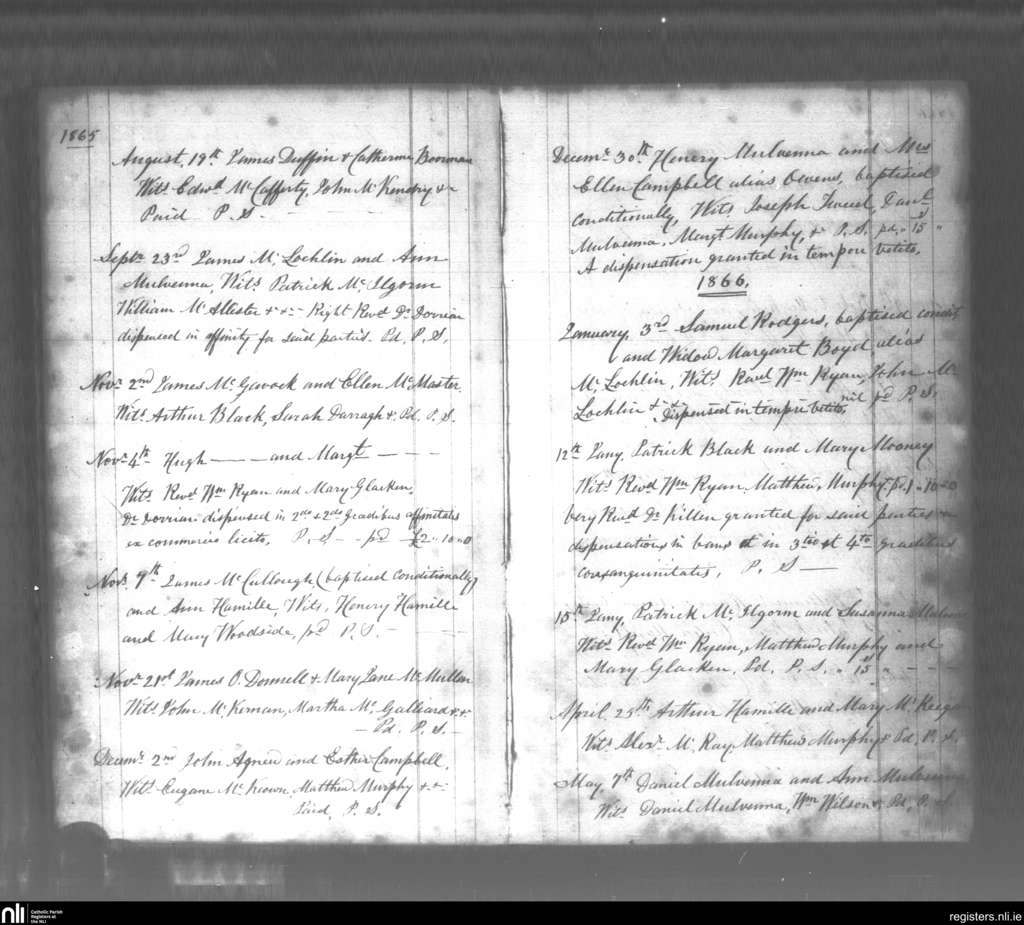 1865
August, 19th James Duffin & Catherine Bowman
Wits Edwd McCafferty, John McKendry &-
Paid P. S.
Septr 23rd James McLochlin and Ann
Mulvenna, Wits Patrick McIlgorm
William McAllister &-&- Right Revd Dr Dorrian
dispensed in affinity for said parties. Pd. P. S,
Novr 2nd James McGavock and Ellen McMaster
Wits Arthur Black, Sarah Darragh &- Pd. P. S.
Novr 4th Hugh ——— and Margt — — —
Wits Revd Wm Ryan and Mary Glacken.
Dr Dorrian dispensed in 2do & 2do gradibus affinitatis
ex commercio licito, P. S - - pd £2 " 10 " 0
Novr 7th James McCullough (baptised conditionally)
and Ann Hamille, Wits, Henery Hamille
and Mary Woodside, pd P. S. -
Novr 21st James O. Donnell & Mary Jane McMullan
Wits John McKernan, Martha McGalliard &-&-
— Pd. P. S. —
Decemr 2nd John Agnew and Esther Campbell,
Wits Eugane McKeown, Matthew Murphy &-&-
Paid, P. S.
Decemr 30th Henery Mulvenna and Mrs
Ellen Campbell alias Owens, baptised
conditionally, Wits Joseph Danl
Mulvenna, Margt Murphy, &- P. S. pd. " 15 "
A dispensation granted in tempori vetito.
1866.
January, 3rd Samuel Rodgers, baptised condit
and Widow Margaret Boyd alias
McLochlin, Wits Revd Wm Ryan, John Mc
Lochlin &-&- Dispensed in tempori vetito, nil pd P. S.
12th Jany. Patrick Black and Mary Mooney
Wits Revd Wm Ryan. Matthew, Murphy. pd. 1 " 10 " 0
Very Revd Dr Killen granted for said parties a
dispensation in bans et in 3tio et 4to gradibus
consanguinitatis, P. S —
15th Jany. Patrick McIlgorm and Susanna
Wits Revd Wm Ryan, Matthew Murphy and
Mary Glacken, Pd. P. S. " 15 " - - -
April, 25th Arthur Hamille and Mary
Wits Alexr McKay, Matthew Murphy &- Pd, P. S.
May 7th Daniel Mulvenna and Ann Mulvenna
Wits Daniel Mulvenna, Wm Wilson &- Pd, P. S.
nli
Catholic Parish
Registers at
the NLI
registers.nli.ie